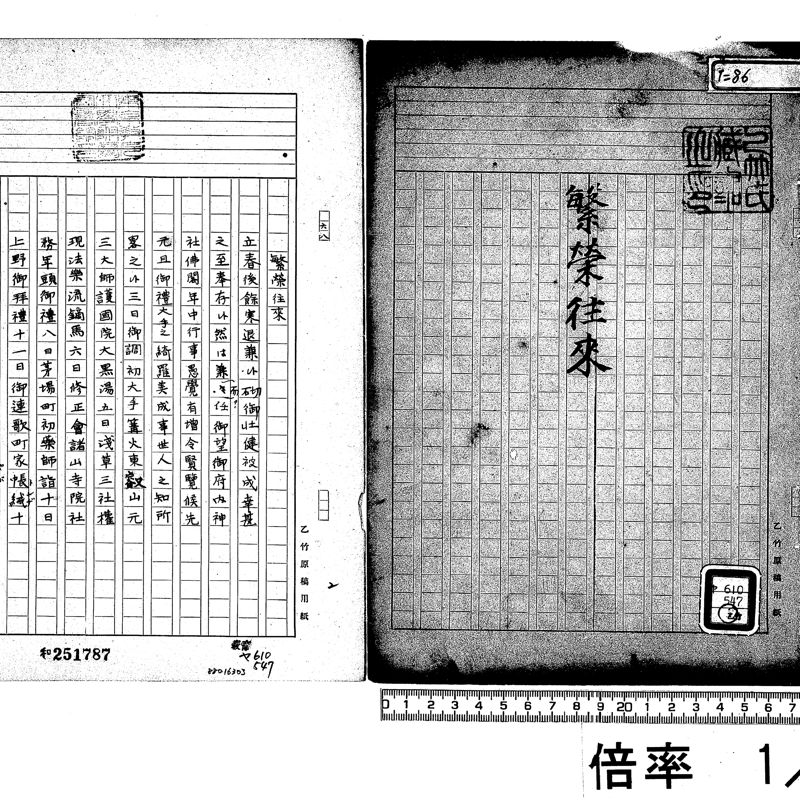 1=86
繁榮往來
乙竹原稿用紙
610
547
繁榮往來
立春後餘寒退兼候砌御壯健被成幸甚
之至奉存候然は兼而任御望御府内神
社佛閣年中行事愚覺有増令賢覽候先
元旦御禮大手之綺羅美成事世人之知所
畧之候三日御調初大手篝火東叡山元
三大師護國院大黒湯五日淺草三社權
現法樂流鏑馬六日修正會諸山寺院社
務年頭御禮八日茅場町初藥師詣十日
上野御拜禮十一日御連歌町家帳綴十
乙竹原稿用紙
和251787
610
547
88016303
0 1 2 3 4 5 6 7 8 9 20 1 2 3 4 5 6 7
倍率 1/